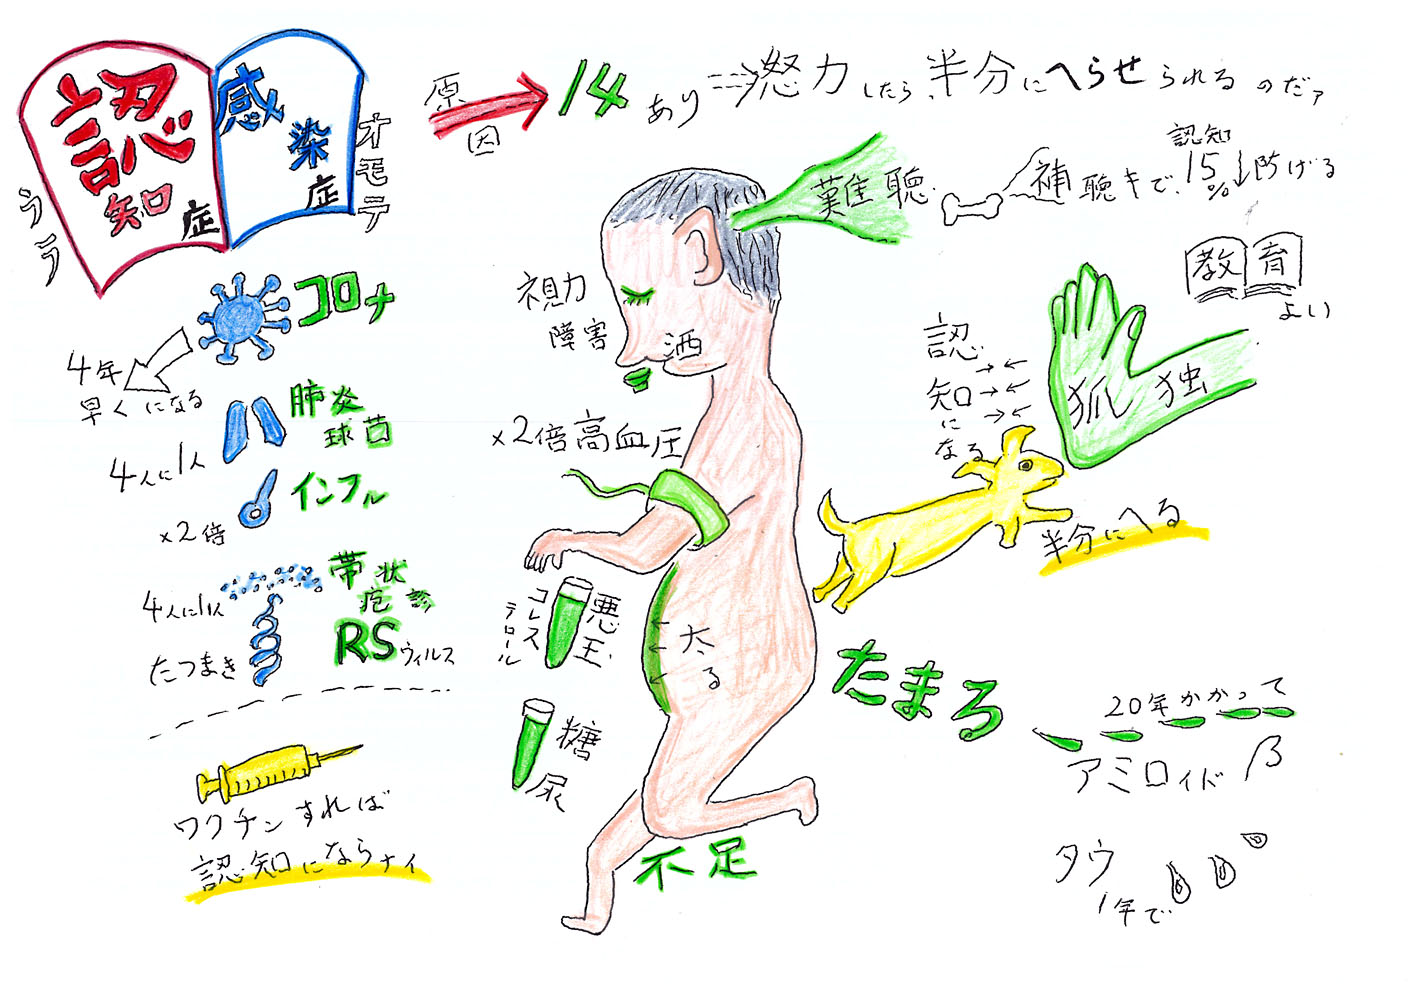 認知症
感染症
ウラ
オモテ
原因
14 あり
努力したら、半分にへらせられるのだァ
難聴
補聴キで、認知15%↓防げる
教育
よい
コロナ
4年
早くになる
肺炎
球菌
4人に1人
インフル
×2倍
帯状
疱疹
4人に1人
RSウィルス
たつまき
ワクチンすれば
認知にならナイ
視力
障害
酒
×2倍高血圧
悪玉
コレス
テロール
太る
糖尿
不足
認知になる
孤独
半分にへる
たまる
20年かかって
アミロイド β
タウ
1年で